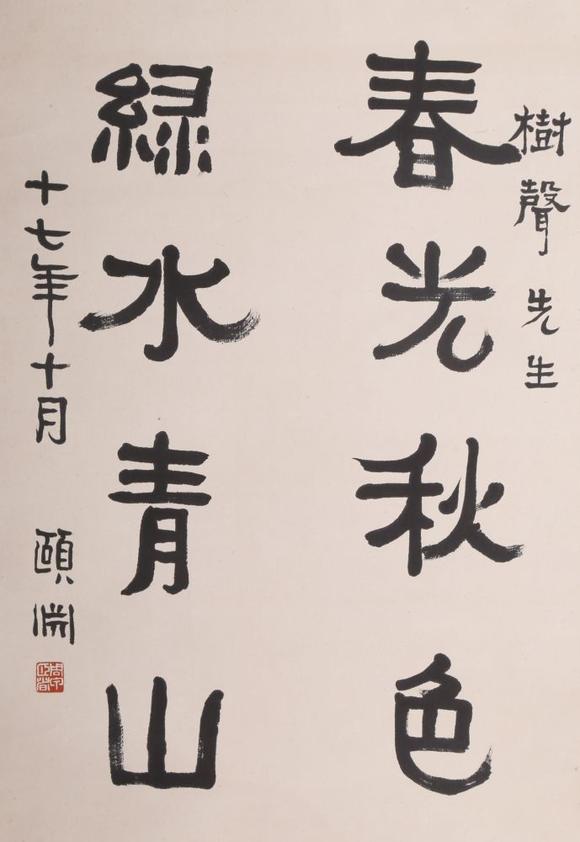 樹聲先生
春光秋色
綠水青山
十七年十月
頤淵